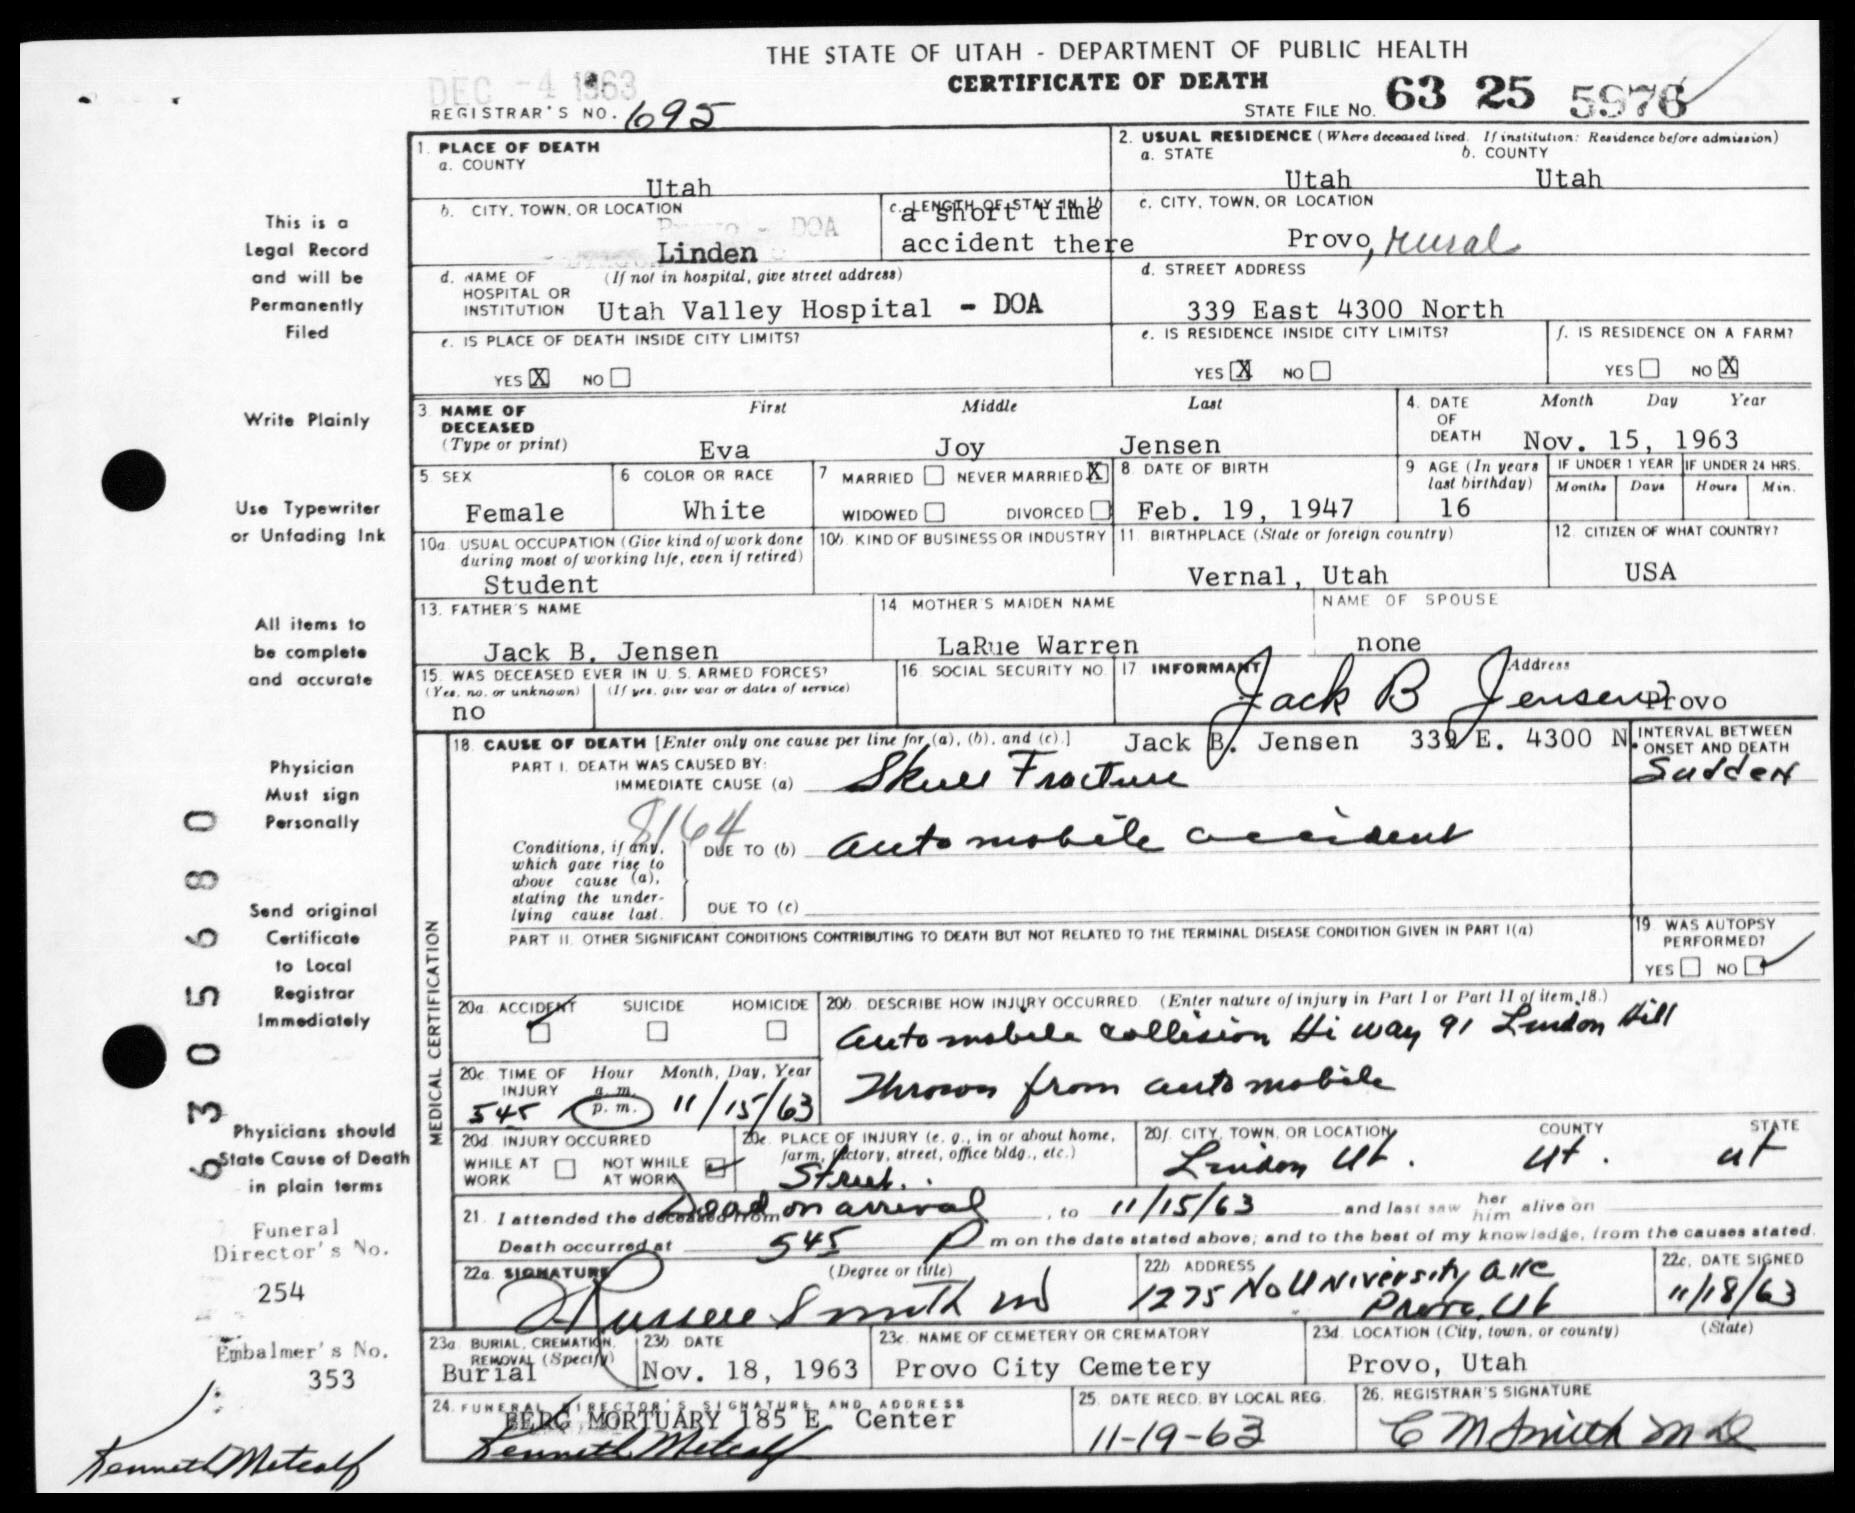 THE STATE OF UTAH - DEPARTMENT OF PUBLIC HEALTH
CERTIFICATE OF DEATH
DEC -4 1963
REGISTRAR'S NO. 695
STATE FILE NO. 63 25 5976
This is a
Legal Record
and will be
Permanently
Filed
Write Plainly
Use Typewriter
or Unfading Ink
All items to
be complete
and accurate
Physician
Must sign
Personally
Send original
Certificate
to Local
Registrar
Immediately
Physicians should
State Cause of Death
in plain terms
Funeral
Director's No.
254
Embalmer's No.
353
Kenneth Metcalf
6305680
1. PLACE OF DEATH
a. COUNTY
Utah
b. CITY, TOWN, OR LOCATION
Provo - DOA
Linden
c. LENGTH OF STAY IN 1b
a short time
accident there
d. NAME OF HOSPITAL OR INSTITUTION (If not in hospital, give street address)
Utah Valley Hospital - DOA
e. IS PLACE OF DEATH INSIDE CITY LIMITS?
YES X NO
2. USUAL RESIDENCE (Where deceased lived. If institution: Residence before admission)
a. STATE
Utah
b. COUNTY
Utah
c. CITY, TOWN, OR LOCATION
Provo, rural
d. STREET ADDRESS
339 East 4300 North
e. IS RESIDENCE INSIDE CITY LIMITS?
YES X NO
f. IS RESIDENCE ON A FARM?
YES NO X
3. NAME OF DECEASED (Type or print)
First Middle Last
Eva Joy Jensen
4. DATE OF DEATH Month Day Year
Nov. 15, 1963
5. SEX
Female
6 COLOR OR RACE
White
7 MARRIED NEVER MARRIED X
WIDOWED DIVORCED
8 DATE OF BIRTH
Feb. 19, 1947
9 AGE (In years last birthday)
16
IF UNDER 1 YEAR IF UNDER 24 HRS.
Months Days Hours Min.
10a. USUAL OCCUPATION (Give kind of work done during most of working life, even if retired)
Student
10b. KIND OF BUSINESS OR INDUSTRY
11. BIRTHPLACE (State or foreign country)
Vernal, Utah
12. CITIZEN OF WHAT COUNTRY?
USA
13. FATHER'S NAME
Jack B. Jensen
14 MOTHER'S MAIDEN NAME
LaRue Warren
NAME OF SPOUSE
none
15. WAS DECEASED EVER IN U.S. ARMED FORCES?
(Yes, no, or unknown) (If yes, give war or dates of service)
no
16. SOCIAL SECURITY NO.
17. INFORMANT Address
Jack B Jensen Provo
Jack B. Jensen 339 E. 4300 N.
MEDICAL CERTIFICATION
18. CAUSE OF DEATH [Enter only one cause per line for (a), (b), and (c).]
PART I. DEATH WAS CAUSED BY:
IMMEDIATE CAUSE (a) Skull Fracture
INTERVAL BETWEEN ONSET AND DEATH
Sudden
8164
Conditions, if any, which gave rise to above cause (a), stating the underlying cause last.
DUE TO (b) automobile accident
DUE TO (c)
PART II. OTHER SIGNIFICANT CONDITIONS CONTRIBUTING TO DEATH BUT NOT RELATED TO THE TERMINAL DISEASE CONDITION GIVEN IN PART I(a)
19. WAS AUTOPSY PERFORMED?
YES NO
20a. ACCIDENT SUICIDE HOMICIDE
20b. DESCRIBE HOW INJURY OCCURRED. (Enter nature of injury in Part I or Part II of item 18.)
automobile collision Hi way 91 Lindon Hill
Thrown from automobile
20c. TIME OF INJURY Hour Month, Day, Year
a.m.
545 p.m. 11/15/63
20d. INJURY OCCURRED
WHILE AT WORK NOT WHILE AT WORK
20e. PLACE OF INJURY (e. g., in or about home, farm, factory, street, office bldg., etc.)
Street.
20f. CITY, TOWN, OR LOCATION COUNTY STATE
Lindon Ut. Ut. Ut
21. I attended the deceased from Dead on arrival, to 11/15/63 and last saw her him alive on
Death occurred at 545 P m on the date stated above; and to the best of my knowledge, from the causes stated.
22a. SIGNATURE (Degree or title)
Russell Smith MD
22b. ADDRESS
1275 No University Ave
Provo, Ut
22c. DATE SIGNED
11/18/63
23a. BURIAL, CREMATION, REMOVAL (Specify)
Burial
23b. DATE
Nov. 18, 1963
23c. NAME OF CEMETERY OR CREMATORY
Provo City Cemetery
23d. LOCATION (City, town, or county) (State)
Provo, Utah
24. FUNERAL DIRECTOR'S SIGNATURE AND ADDRESS
BERG MORTUARY 185 E. Center
Kenneth Metcalf
25. DATE RECD. BY LOCAL REG.
11-19-63
26. REGISTRAR'S SIGNATURE
C M Smith MD